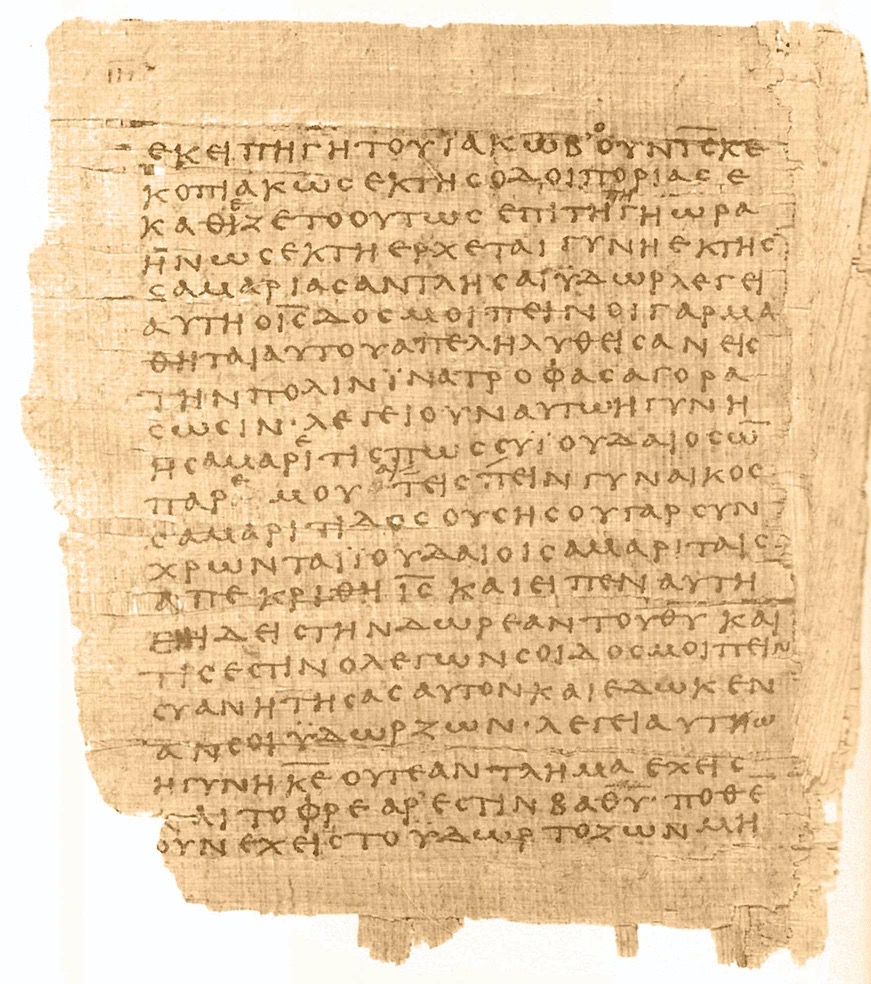 ΕΚΕΙΠΗΓΗΤΟΥΪΑΚΩΒ`Ο´ΟΥΝΙ̅Ϲ̅ΚΕ
ΚΟΠΙΑΚΩϹΕΚΤΗϹΟΔΟΙΠΟΡΙΑϹΕ
ΚΑΘ`Ε´ΙΖΕΤΟΟΥΤΩϹΕΠΙΤΗ`ΠΗ´ΓΗΩΡΑ
ΗΝΩϹΕΚΤΗΕΡΧΕΤΑΙΓΥΝΗΕΚΤΗϹ
ϹΑΜΑΡΙΑϹΑΝΤΛΗϹΑΙΫΔΩΡΛΕΓΕΙ
ΑΥΤΗΟΙ̅Ϲ̅ΔΟϹΜΟΙΠΕΙΝΟΙΓΑΡΜΑ
ΘΗΤΑΙΑΥΤΟΥΑΠΕΛΗΛΥΘΕΙϹΑΝΕΙϹ
ΤΗΝΠΟΛΙΝΪΝΑΤΡΟΦΑϹΑΓΟΡΑ
ϹΩϹΙΝ·ΛΕΓΕΙΟΥΝΑΥΤΩΗΓΥΝΗ
ΗϹΑΜΑΡ`Ε´ΙΤΙϹΠΩϹϹΥΪΟΥΔΑΙΟϹΩ̅
ΠΑΡ`Ε´ΜΟΥ`ΑΙ´ΤΕΙϹΠΕΙΝΓΥΝΑΙΚΟϹ
ϹΑΜΑΡΙΤΙΔΟϹΟΥϹΗϹΟΥΓΑΡϹΥΝ
ΧΡΩΝΤΑΙΪΟΥΔΑΙΟΙϹΑΜΑΡΙΤΑΙϹ
ΑΠΕΚΡΙΘΗΙ̅Ϲ̅ΚΑΙΕΙΠΕΝΑΥΤΗ
ΕΙΗΔΕΙϹΤΗΝΔΩΡΕΑΝΤΟΥΘ̅Υ̅ΚΑΙ
ΤΙϹΕϹΤΙΝΟΛΕΓΩΝϹΟΙΔΟϹΜΟΙΠΕΙΝ
ϹΥΑΝΗΤΗϹΑϹΑΥΤΟΝΚΑΙΕΔΩΚΕΝ
ΑΝϹΟΙΫΔΩΡΖΩΝ·ΛΕΓΕΙΑΥΤΩ
ΗΓΥΝΗΚ̅Ε̅ΟΥΤΕΑΝΤΛΗΜΑΕΧΕΙϹ
ΚΑΙΤΟΦΡΕΑΡΕϹΤΙΝΒΑΘΥ·ΠΟΘΕ̅
ΟΥΝΕΧΕΙϹΤΟΫΔΩΡΤΟΖΩΝΜΗ